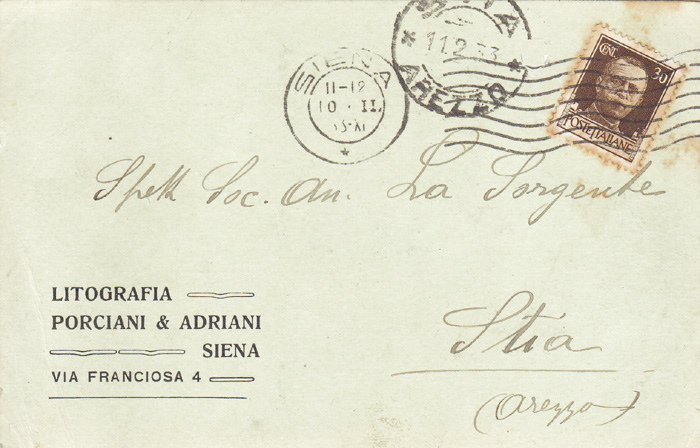 STIA
* 11.2.33 *
AREZZO
SIENA
11-12
10 · II.
33·XI
*
CENT. 30
POSTE ITALIANE
Spett Soc. An. La Sorgente
Stia
(Arezzo)
LITOGRAFIA
PORCIANI & ADRIANI
SIENA
VIA FRANCIOSA 4